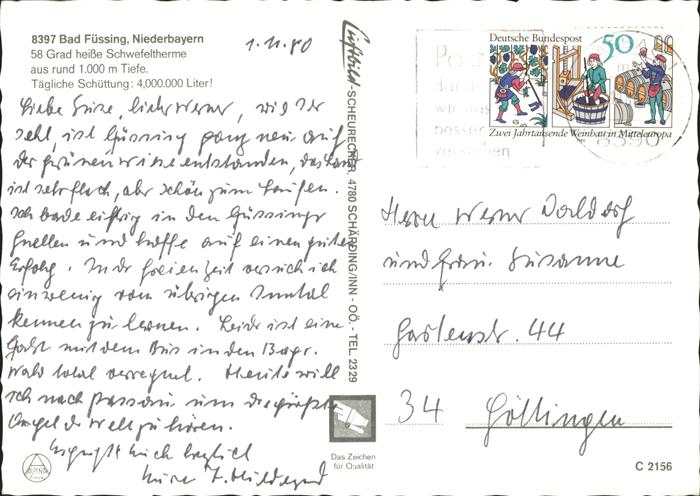 8397 Bad Füssing, Niederbayern
58 Grad heiße Schwefeltherme
aus rund 1.000 m Tiefe.
Tägliche Schüttung: 4,000.000 Liter!
1.11.80
Liebe Suse, lieber Werner, wie Ihr
seht, ist Füssing ganz neu auf
der grünen Wiese entstanden, das Land
ist sehr flach, aber schön zum Laufen.
Ich bade eifrig in den Füssinger
Quellen und hoffe auf einen guten
Erfolg. In der freien Zeit versuch ich
ein wenig vom übrigen Inntal
kennen zu lernen. Leider ist eine
Fahrt mit dem Bus in den Bayr.
Wald total verregnet. Heute will
ich nach Passau um die größte
Orgel der Welt zu hören.
Es grüßt Euch herzlich
Eure
Luftbild-SCHEURECHER, 4780 SCHÄRDING/INN - OÖ. - TEL. 2329
Das Zeichen
für Qualität
Deutsche Bundespost
50
Zwei Jahrtausende Weinbau in Mitteleuropa
Post
wir uns
besser
verstehen
8390
Herrn Werner
und Frau Susanne
Gartenstr. 44
34 Göttingen
ALPINA
C 2156